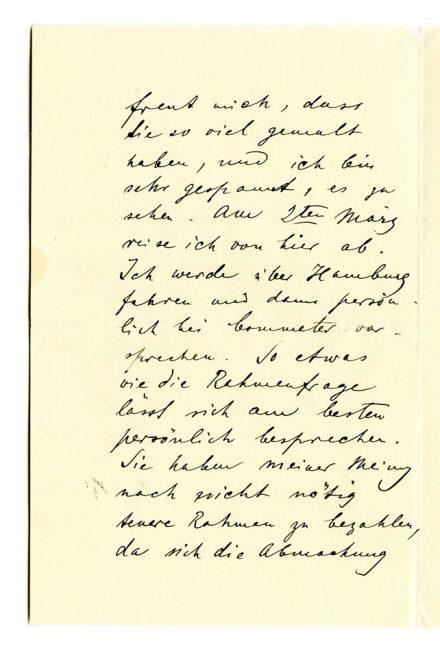 freut mich, dass
Sie so viel gemalt
haben, und ich bin
sehr gespannt, es zu
sehen. Am 2ten März
reise ich von hier ab.
Ich werde über Hamburg
fahren und dann persön-
lich bei Commeter vor-
sprechen. So etwas
wie die Rahmenfrage
lässt sich am besten
persönlich besprechen.
Sie haben meiner Meinung
nach nicht nötig
teuere Rahmen zu bezahlen,
da sich die Abmachung